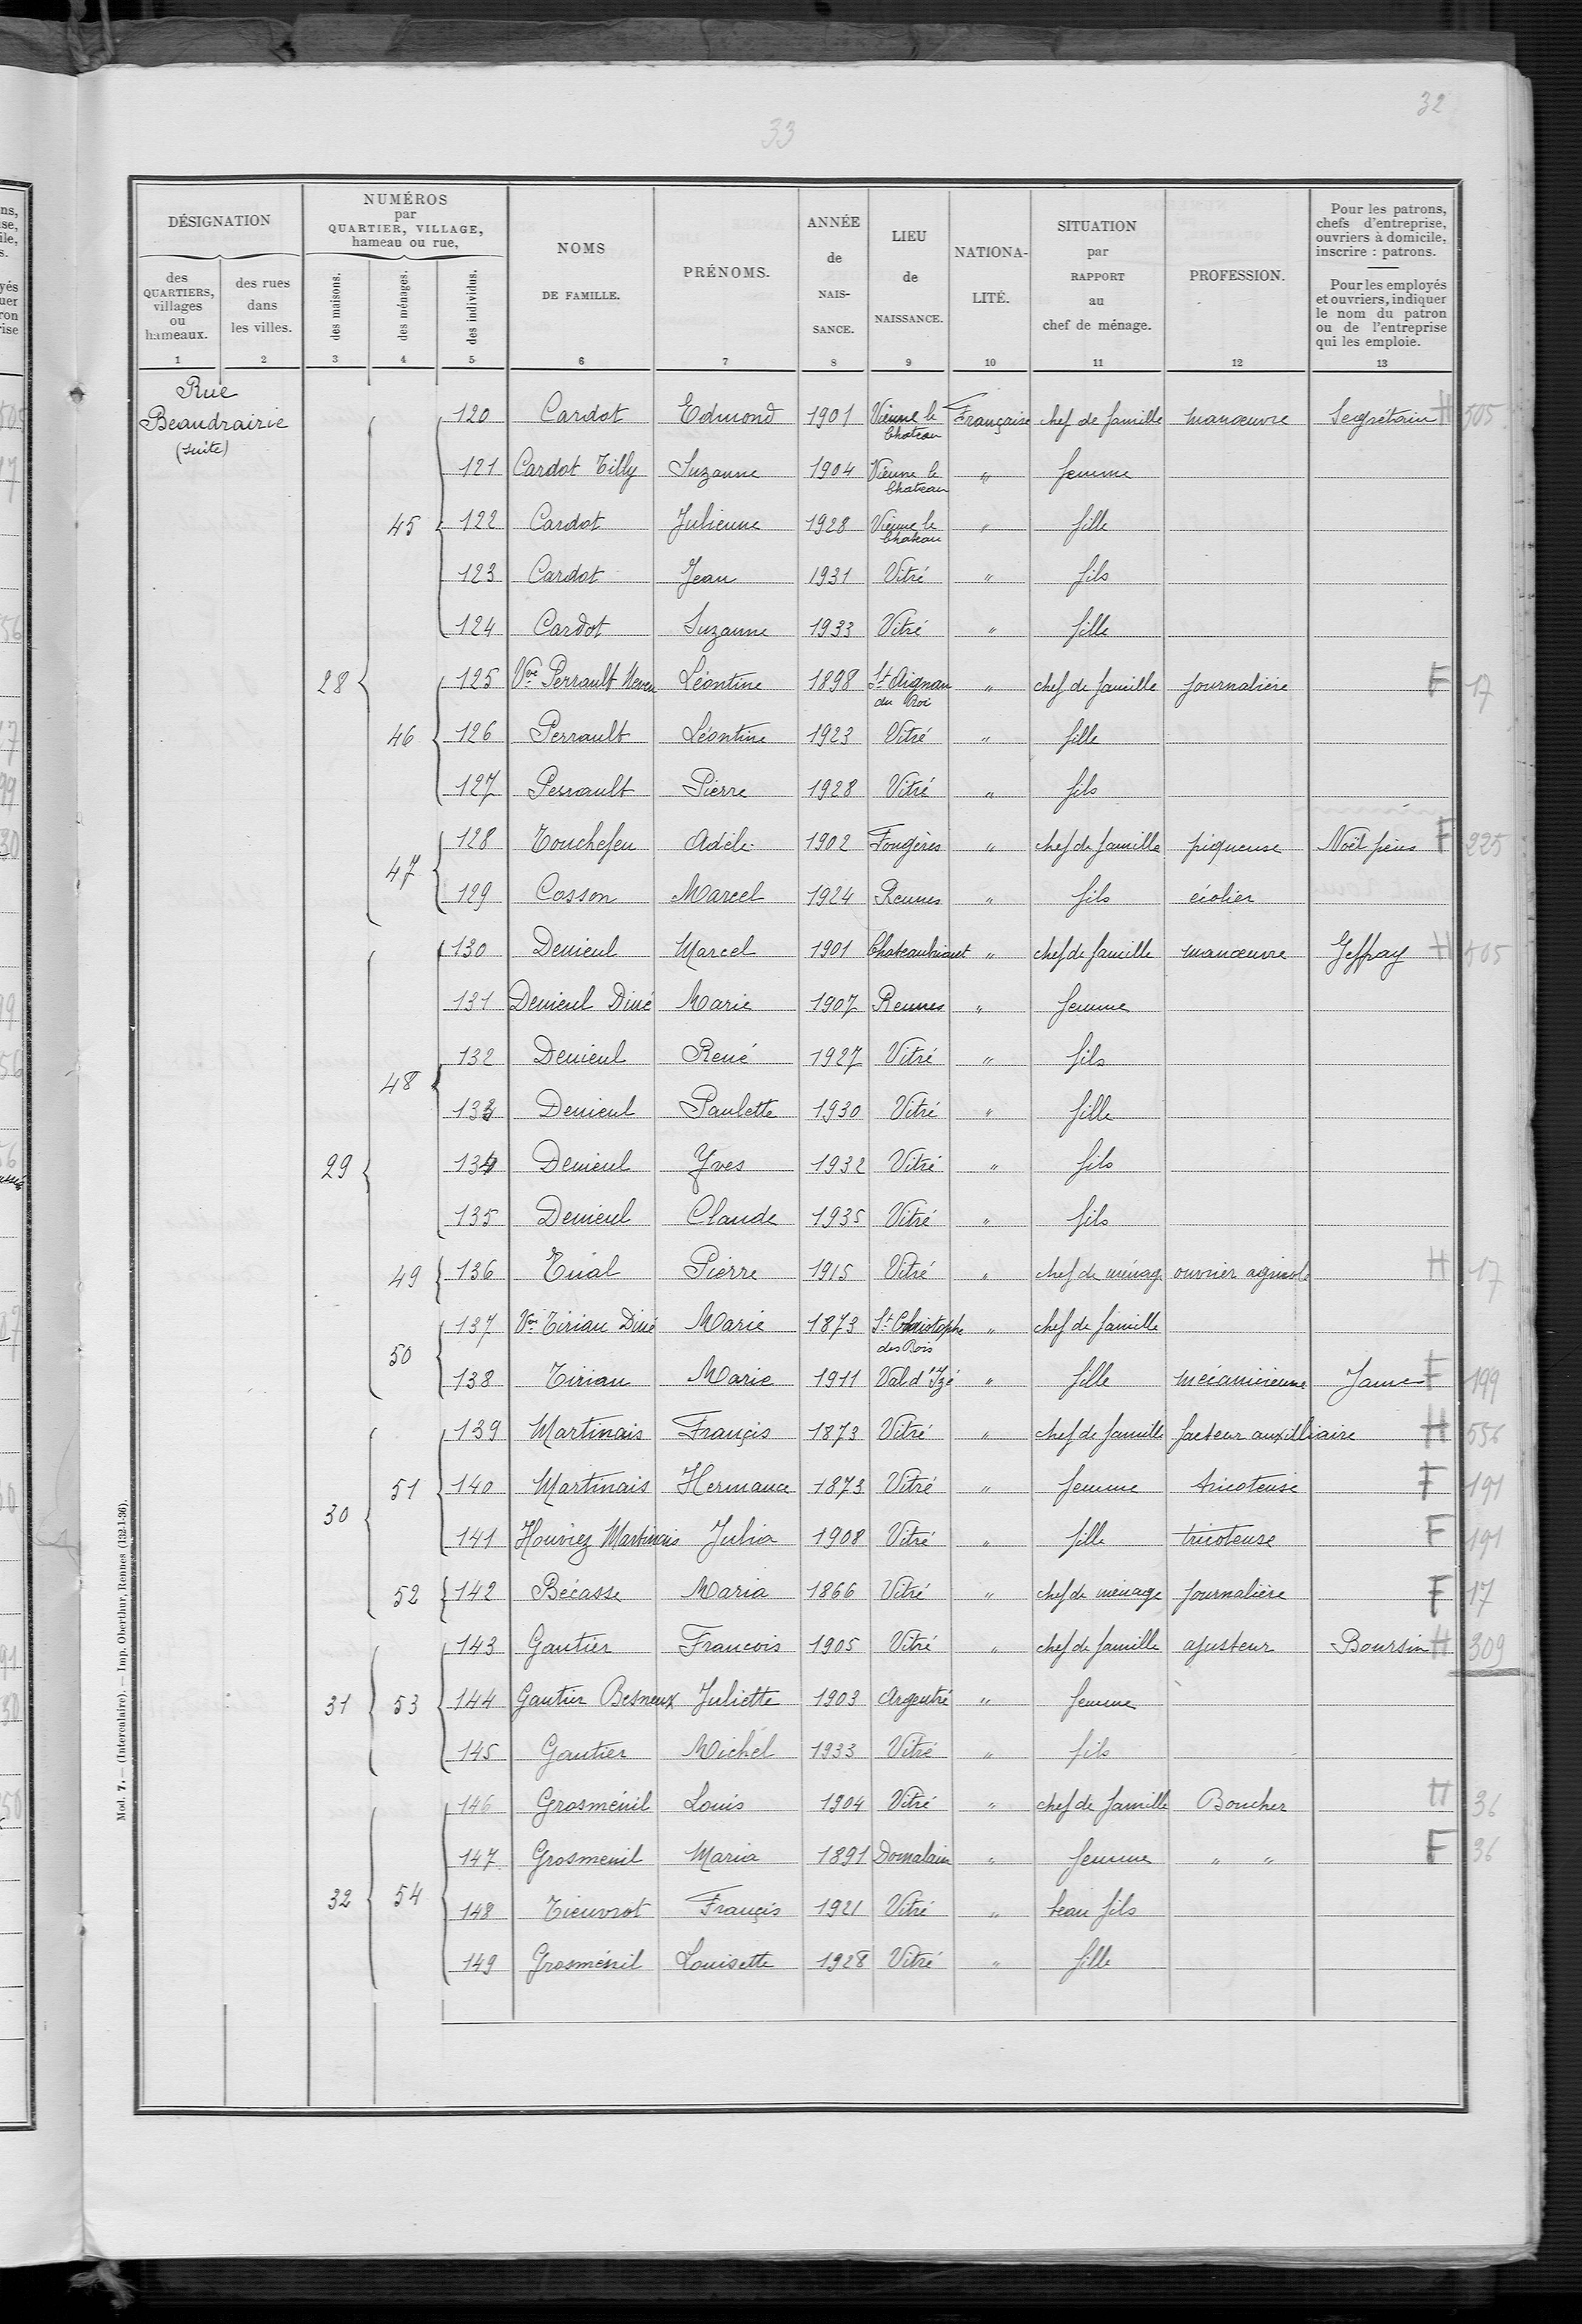 32
33
DÉSIGNATION
NUMÉROS
par
QUARTIER, VILLAGE,
hameau ou rue,
NOMS
DE FAMILLE.
PRÉNOMS.
ANNÉE
de
NAIS-
SANCE.
LIEU
de
NAISSANCE.
NATIONA-
LITÉ.
SITUATION
par
RAPPORT
au
chef de ménage.
PROFESSION.
Pour les patrons,
chefs d'entreprise,
ouvriers à domicile,
inscrire : patrons.
Pour les employés
et ouvriers, indiquer
le nom du patron
ou de l'entreprise
qui les emploie.
des
QUARTIERS,
villages
ou
hameaux.
des rues
dans
les villes.
des maisons.
des ménages.
des individus.
1 2 3 4 5 6 7 8 9 10 11 12 13
Rue
Beaudrairie
(suite)
120 Cardot Edmond 1901 Vienne le Chateau Française chef de famille manœuvre Segrétain H 505
121 Cardot Tilly Suzanne 1904 Vienne le Chateau " femme
45 122 Cardot Julienne 1928 Vienne le Chateau " fille
123 Cardot Jean 1931 Vitré " fils
124 Cardot Suzanne 1933 Vitré " fille
28 125 Vve Perrault Neveu Léontine 1898 St Aignan du Roi " chef de famille journalière F 17
46 126 Perrault Léontine 1923 Vitré " fille
127 Perrault Pierre 1928 Vitré " fils
47 128 Touchefeu Adèle 1902 Fougères " chef de famille piqueuse Noël F 225
129 Cosson Marcel 1924 Rennes " fils écolier
130 Denieul Marcel 1901 Chateaubriant " chef de famille manœuvre Geffray H 505
131 Denieul Diné Marie 1907 Rennes " femme
132 Denieul René 1927 Vitré " fils
48 133 Denieul Paulette 1930 Vitré " fille
29 134 Denieul Yves 1932 Vitré " fils
135 Denieul Claude 1935 Vitré " fils
49 136 Tual Pierre 1915 Vitré " chef de ménage ouvrier agricole H 17
137 Vve Tirian Diné Marie 1873 St Christophe des Bois " chef de famille
50 138 Tirian Marie 1911 Val d'Izé " fille mécanicienne F 199
139 Martinais François 1873 Vitré " chef de famille facteur auxilliaire H 556
30 51 140 Martinais Hermance 1873 Vitré " femme tricoteuse F 191
141 Houviez Martinais Julia 1908 Vitré " fille tricoteuse F 191
52 142 Bécasse Maria 1866 Vitré " chef de ménage journalière F 17
143 Gautier Francois 1905 Vitré " chef de famille ajusteur Boursin H 309
31 53 144 Gautier Besneux Juliette 1903 Argentré " femme
145 Gautier Michel 1933 Vitré " fils
146 Grosménil Louis 1904 Vitré " chef de famille Boucher H 36
147 Grosmenil Maria 1891 Domalain " femme " " F 36
32 54 148 Tieuvrot François 1921 Vitré " beau fils
149 Grosménil Louisette 1928 Vitré " fille
Mod. 7. — (Intercalaire). — Imp. Oberthur, Rennes (132-1-36).